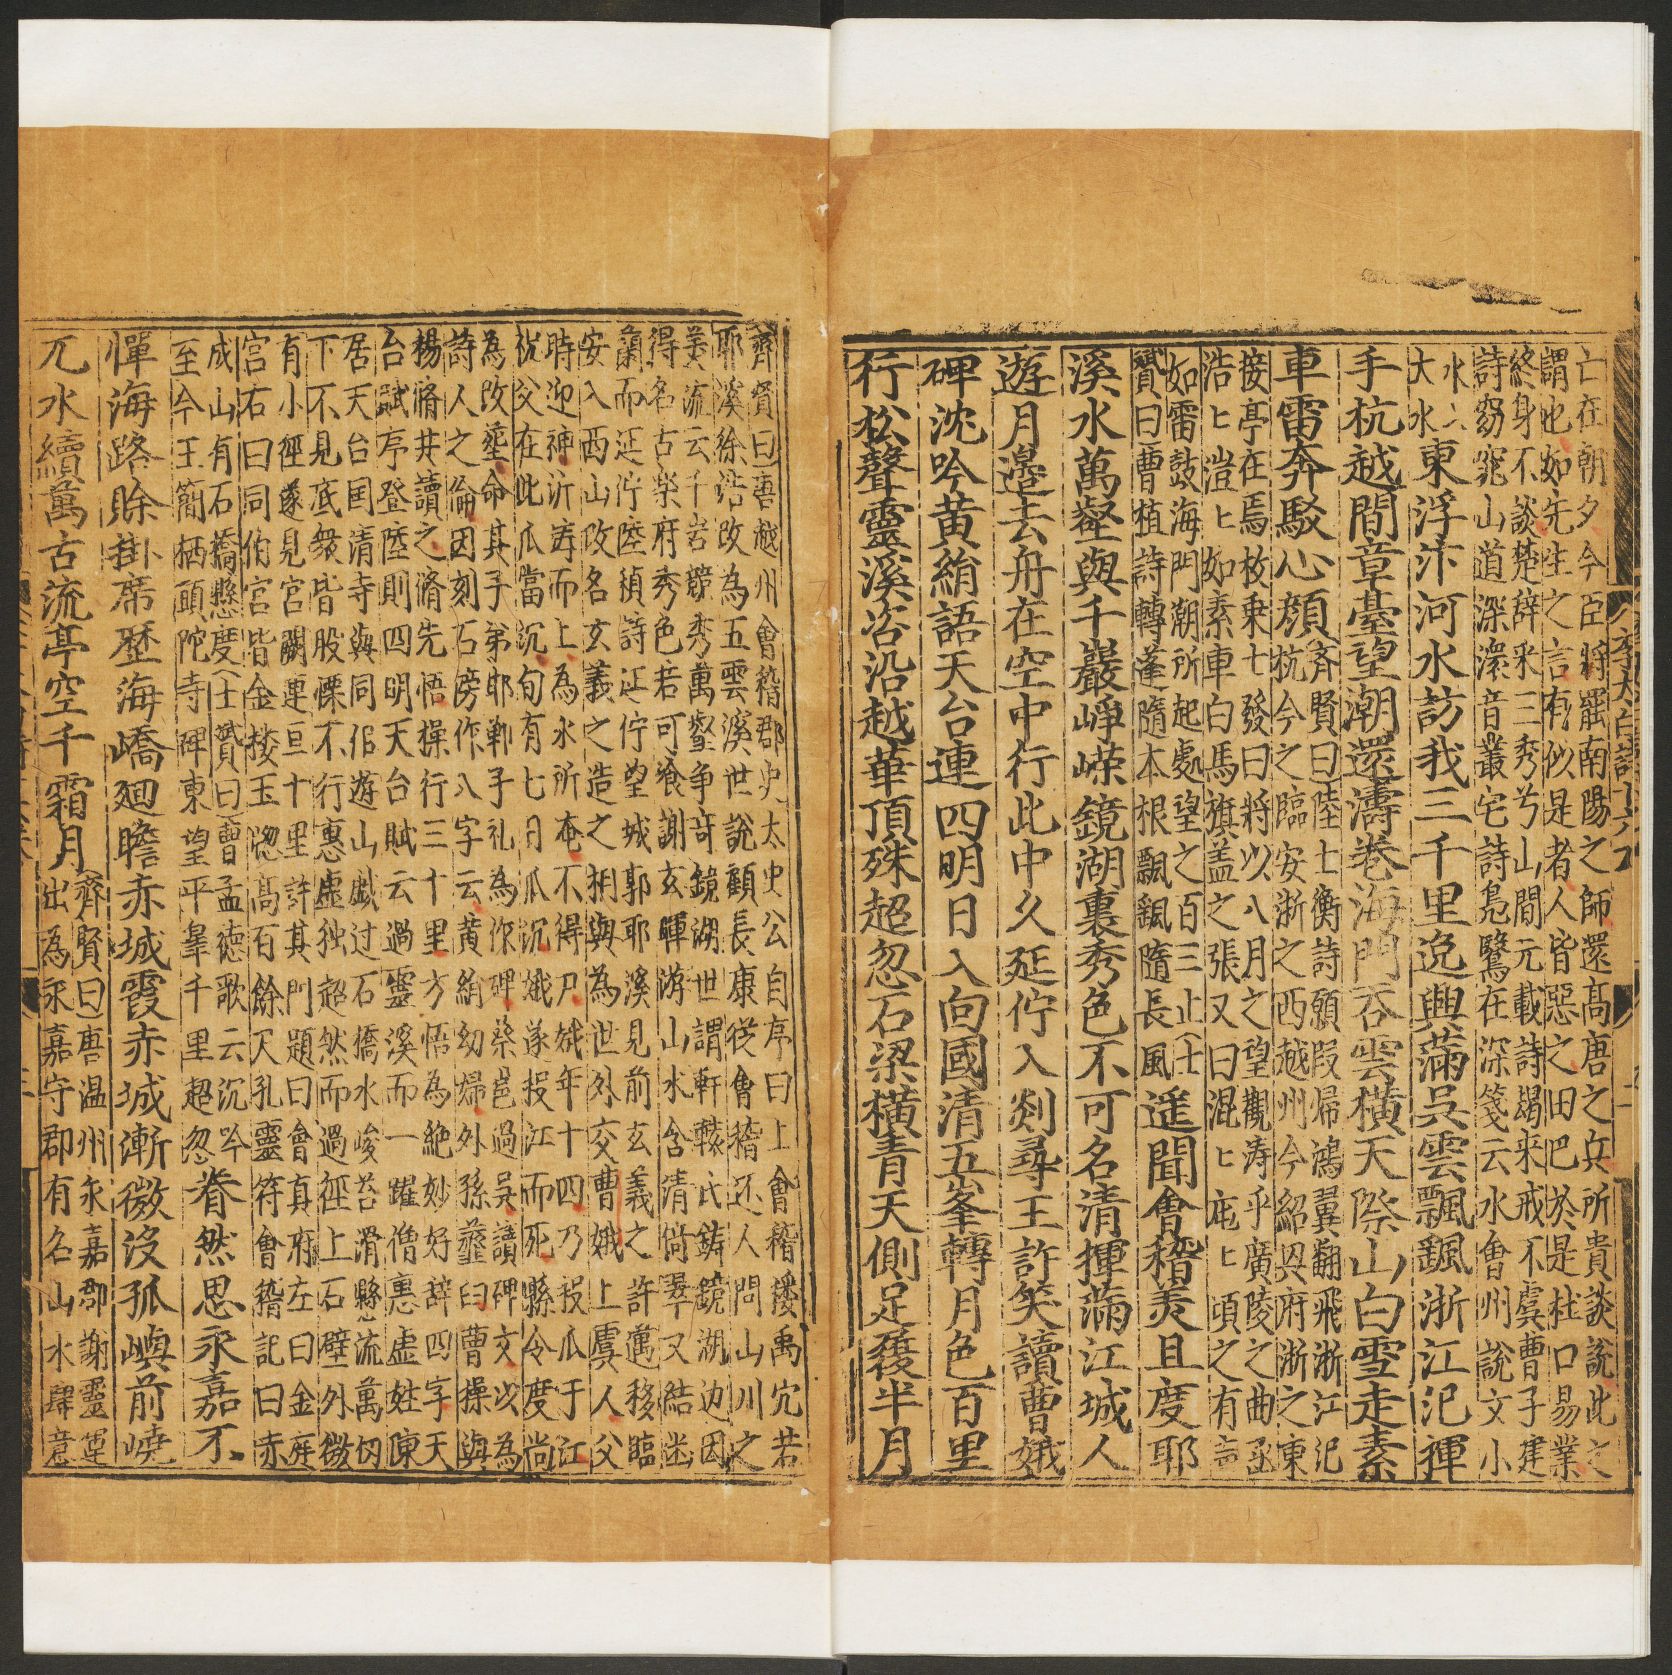 李太白詩十六
亡在朝夕今臣將罷南陽之師還髙唐之兵所貴談說此之
謂也如先生之言有似是者人皆惡之田巴於是杜口易業
終身不談楚辭采三秀兮山間元載詩朅来戒不虞曹子建
詩窈窕山道深潨音叢宅詩鳧鷖在深箋云水會州說文小
水入
大水
東浮汴河水訪我三千里逸興滿吳雲飄颻浙江汜揮
手杭越間章臺望潮還濤卷海門石雲橫天際山白雪走素
車雷奔駭心顔
齊賢曰陸士衡詩願叚帰鴻翼翻飛浙江汜
杭今之臨安浙之西越州今紹興府浙之東
接亭在焉枚乗七發曰將以八月之望觀涛乎廣陵之曲丞
浩〻溰〻如素車白馬旗盖之張又曰混〻庉〻頃之有声
如雷鼓海門潮所起處望之百三止士
贇曰曹植詩轉蓬隨本根飄颻隨長風
遥聞會稽羙且度耶
溪水萬壑與千巖崢嶸鏡湖裏秀色不可名清揮滿江城人
遊月邉去舟在空中行此中久延佇入剡尋王許笑讀曹娥
碑沈吟黄絹語天台連四明日入向國清五峯轉月色百里
行松聲靈溪咨沿越華頂殊超忽石梁橫青天側足履半月
齊賢曰唐越州會稽郡史太史公自序曰上會稽探禹穴若
耶溪徐浩改為五雲溪世說顧長康從會稽还人問山川之
美流云千岩競秀萬壑争竒鏡湖世謂軒轅氏鋳鏡湖边因
得名古柴府秀色若可飡謝玄暉游山水含清倘翠又結幽
蘭而延佇陸禎詩延佇望城郭耶溪見前玄義之許邁移臨
安入西山改名玄義之造之輙與為世外交曹娥上虞人父
時迎神沂涛而上為水所奄不得尸娥年十四乃投瓜于江
祝父在此瓜當沉旬有七日瓜沉娥遂投江而死縣令度尚
為改塟命其子弟耶鄲子礼為作碑蔡邕過吳讀碑文以為
詩人之倫因刻石傍作八字云黄絹幼婦外孫虀臼曹操與
楊脩并讀之脩先悟操行三十里方悟為絶妙好辞四字天
台賦序登陸則四明天台賦云過靈溪而一躍僧惠虚姓陳
居天台国清寺與同侣遊山戯过石橋水峻苔滑縣流萬仭
下不見底衆皆股慄不行惠虚独超然而過徑上石壁外微
有小徑遂見宫闕連亘十里許其門題曰會真府左曰金庭
宫右曰同伯宫皆金楼玉㥦髙百餘丈孔靈符會稽記曰赤
成山有石橋懸度士贇曰曹孟徳歌云沉吟
至今王簡栖頭陀寺碑東望平皐千里超忽
眷然思永嘉不
憚海路賖掛席歷海嶠廻瞻赤城霞赤城漸微没孤嶼前嶢
兀水續萬古流亭空千霜月
齊賢曰唐温州永嘉郡謝靈運
出為永嘉守郡有名山水肆意